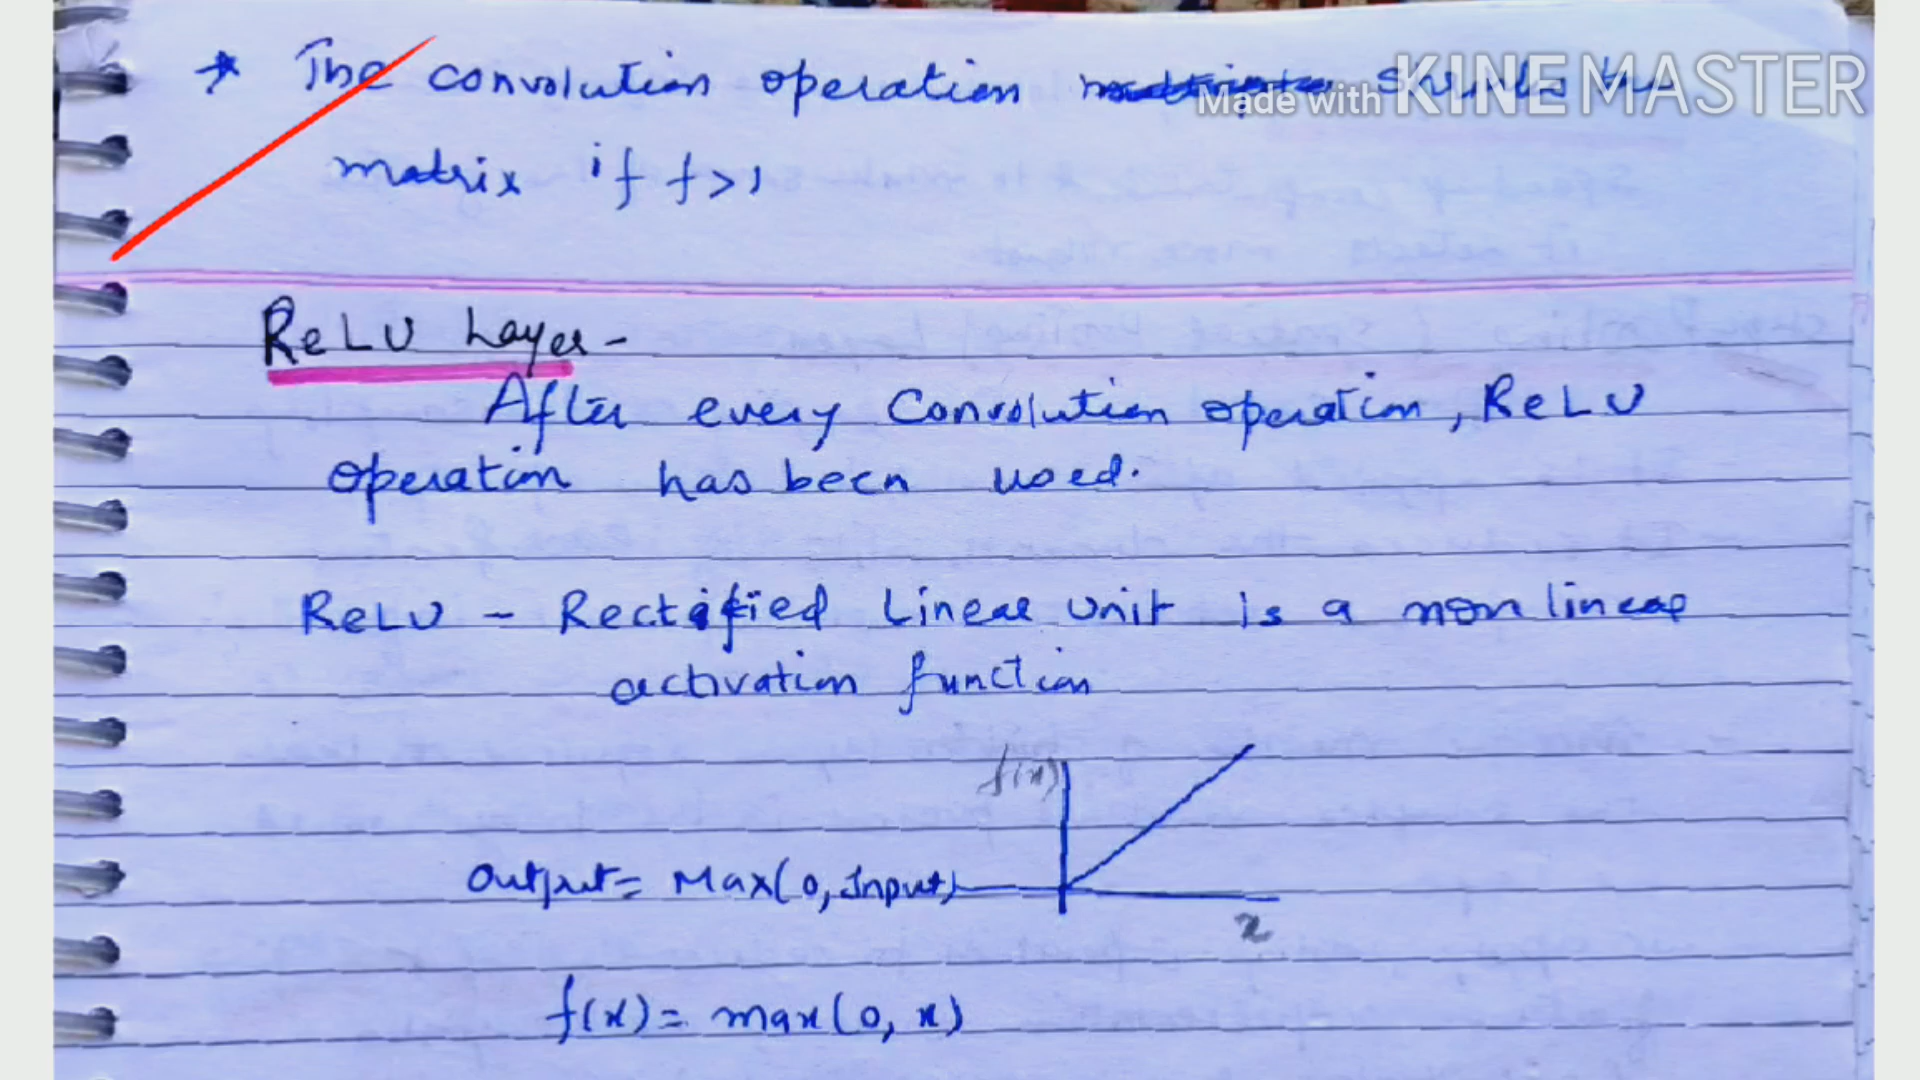 * The convolution operation shrinks the
Made with KINEMASTER
matrix if f>1
ReLU Layer -
After every Convolution operation, ReLU
operation has been used.
ReLU - Rectified Linear Unit is a non linear
activation function
f(x)
Output = Max(0, Input)
x
f(x) = max(0, x)